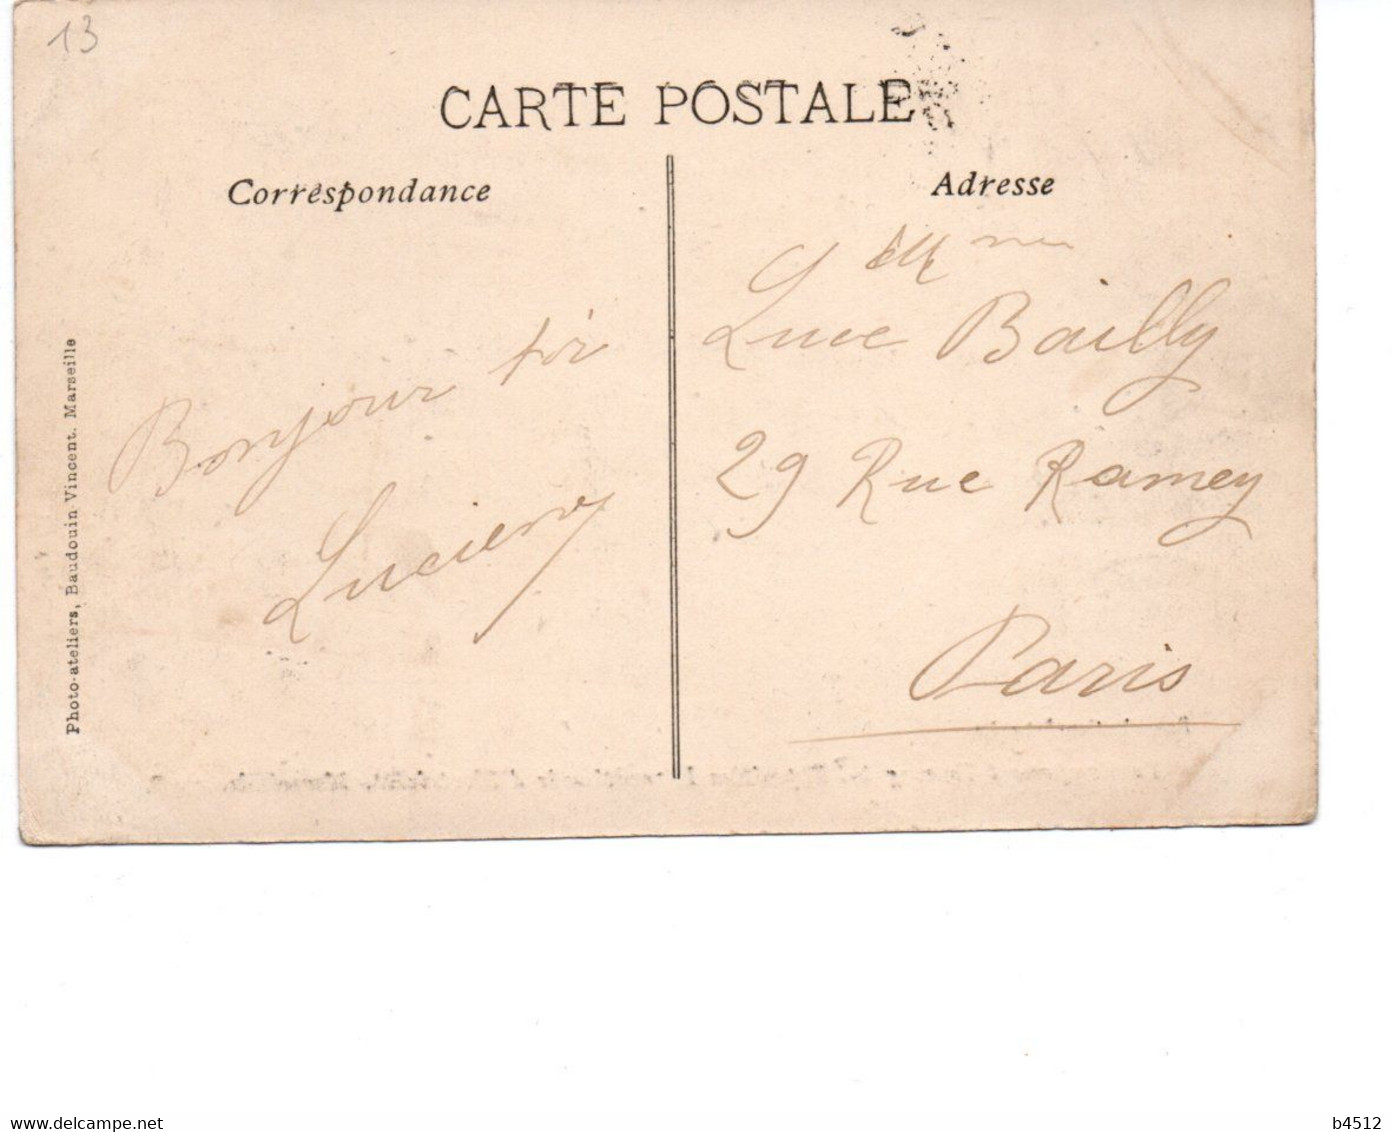 13
CARTE POSTALE
Correspondance
Adresse
Luce Bailly
Bonjour
29 Rue Ramey
Lucien
Paris
Photo-ateliers, Baudouin Vincent. Marseille
www.delcampe.net
b4512